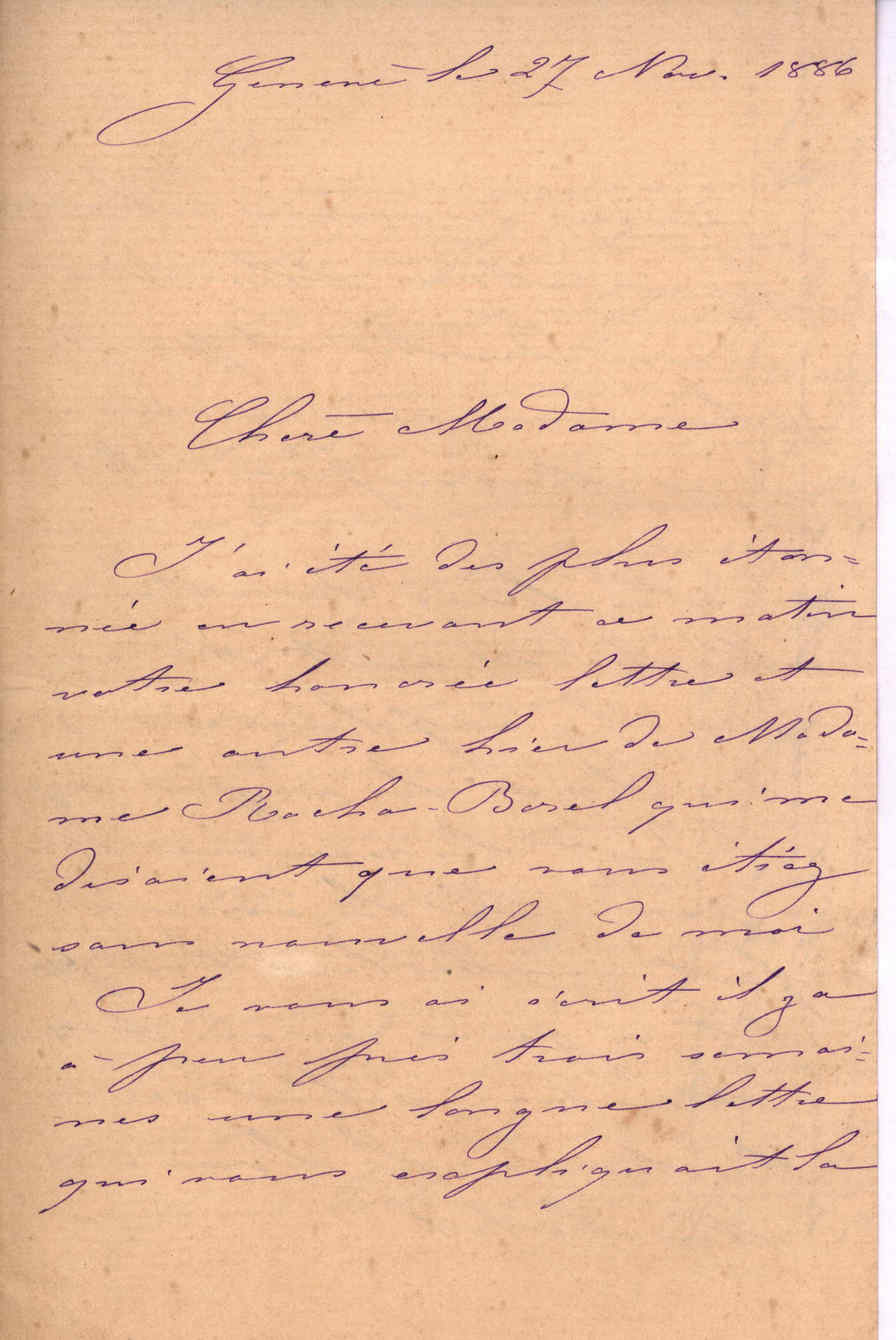 Genève le 27 Nov. 1886
Chère Madame
J'ai été des plus éton=
née en recevant ce matin
votre honorée lettre et
une autre hier de Mada=
me Rocha-Borel qui me
disaient que vous étiez
sans nouvelle de moi
Je vous ai écrit il y a
à peu près trois semai=
nes une longue lettre
qui vous expliquait la